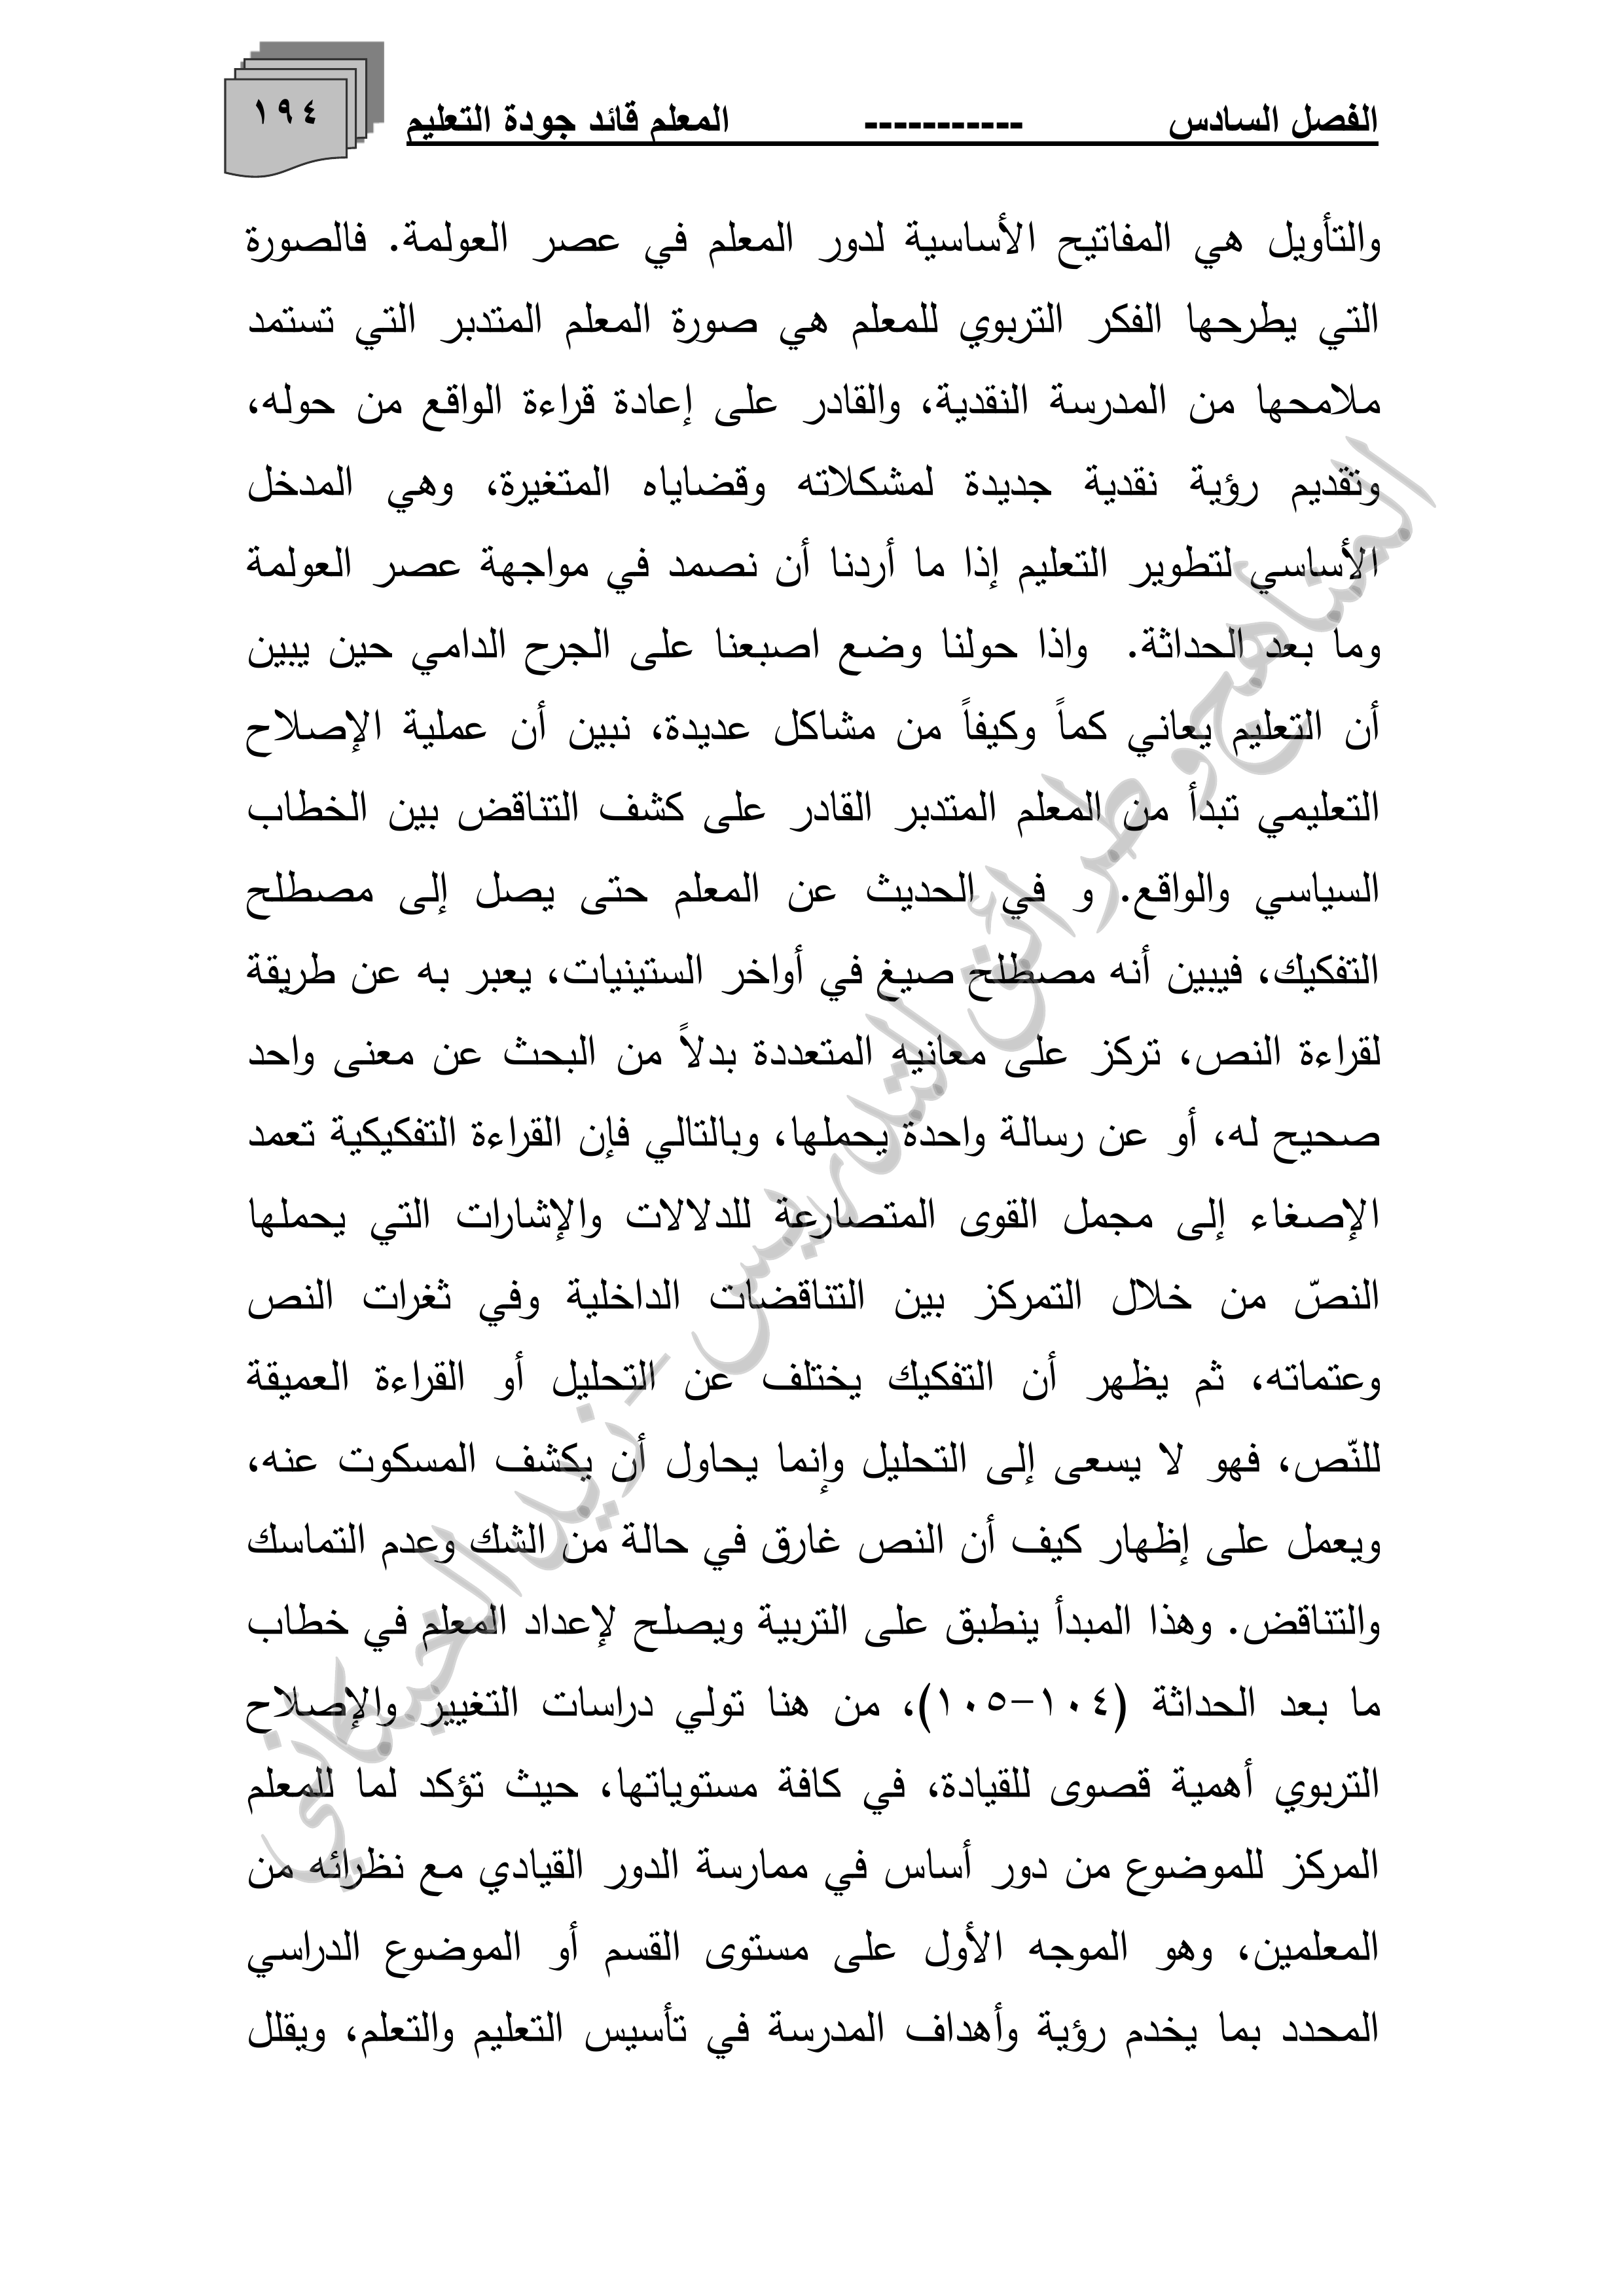 الفصل السادس ----------- المعلم قائد جودة التعليم
١٩٤
والتأويل هي المفاتيح الأساسية لدور المعلم في عصر العولمة. فالصورة
التي يطرحها الفكر التربوي للمعلم هي صورة المعلم المتدبر التي تستمد
ملامحها من المدرسة النقدية، والقادر على إعادة قراءة الواقع من حوله،
وتقديم رؤية نقدية جديدة لمشكلاته وقضاياه المتغيرة، وهي المدخل
الأساسي لتطوير التعليم إذا ما أردنا أن نصمد في مواجهة عصر العولمة
وما بعد الحداثة. واذا حولنا وضع اصبعنا على الجرح الدامي حين يبين
أن التعليم يعاني كماً وكيفاً من مشاكل عديدة، نبين أن عملية الإصلاح
التعليمي تبدأ من المعلم المتدبر القادر على كشف التناقض بين الخطاب
السياسي والواقع. و في الحديث عن المعلم حتى يصل إلى مصطلح
التفكيك، فيبين أنه مصطلح صيغ في أواخر الستينيات، يعبر به عن طريقة
لقراءة النص، تركز على معانيه المتعددة بدلاً من البحث عن معنى واحد
صحيح له، أو عن رسالة واحدة يحملها، وبالتالي فإن القراءة التفكيكية تعمد
الإصغاء إلى مجمل القوى المتصارعة للدلالات والإشارات التي يحملها
النصّ من خلال التمركز بين التناقضات الداخلية وفي ثغرات النص
وعتماته، ثم يظهر أن التفكيك يختلف عن التحليل أو القراءة العميقة
للنّص، فهو لا يسعى إلى التحليل وإنما يحاول أن يكشف المسكوت عنه،
ويعمل على إظهار كيف أن النص غارق في حالة من الشك وعدم التماسك
والتناقض. وهذا المبدأ ينطبق على التربية ويصلح لإعداد المعلم في خطاب
ما بعد الحداثة (١٠٤-١٠٥)، من هنا تولي دراسات التغيير والإصلاح
التربوي أهمية قصوى للقيادة، في كافة مستوياتها، حيث تؤكد لما للمعلم
المركز للموضوع من دور أساس في ممارسة الدور القيادي مع نظرائه من
المعلمين، وهو الموجه الأول على مستوى القسم أو الموضوع الدراسي
المحدد بما يخدم رؤية وأهداف المدرسة في تأسيس التعليم والتعلم، ويقلل
المناهج وطرائق التدريس - زيد الخيكاني